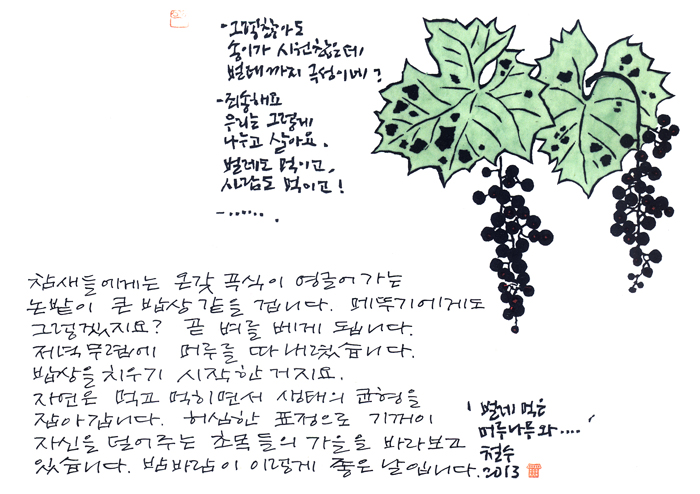 - 그렇잖아도
송이가 시원찮은데
벌레까지 극성이네?
- 죄송해요
우리는 그렇게
나누고 살아요.
벌레도 먹이고,
사람도 먹이고!
- ...... .
참새들에게는 온갖 곡식이 영글어가는
논밭이 큰 밥상 같을 겁니다. 메뚜기에게도
그렇겠지요? 곧 벼를 베게 됩니다.
저녁무렵에 머루를 따 내렸습니다.
밥상을 치우기 시작한 거지요.
자연은 먹고 먹히면서 생태의 균형을
잡아갑니다. 허심한 표정으로 기꺼이
자신을 덜어주는 초목들의 가을을 바라보고
있습니다. 밤바람이 이렇게 좋은 날입니다.
' 벌레 먹은
머루나무와 .... '
철수
2013